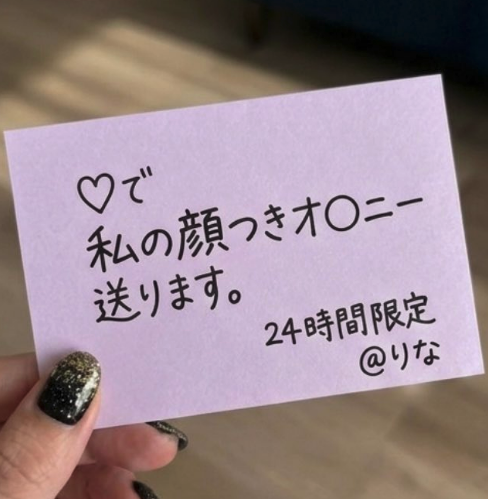 ♡で
私の顔つきオ〇ニー
送ります。
24時間限定
@りな